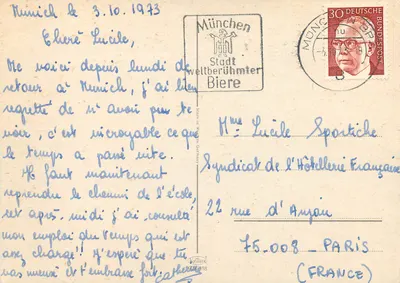 Munich le 3.10.1973
Chère Lucile,
Me voici depuis lundi de
retour à Munich, j'ai bien
regretté de n'avoir pu te
voir, c'est incroyable ce que
le temps a passé vite.
Il faut maintenant
reprendre le chemin de l'école,
cet après-midi j'ai consulté
mon emploi du temps qui est
assez chargé!! J'espère que tu
vas mieux et t'embrasse fort. Catherine
München
Stadt
weltberühmter
Biere
MÜNCHEN
30
DEUTSCHE
BUNDESPOST
Mme Lucile Sportiche
Syndicat de l'Hôtellerie Française
22 rue d'Anjou
75.008 - PARIS
(FRANCE)